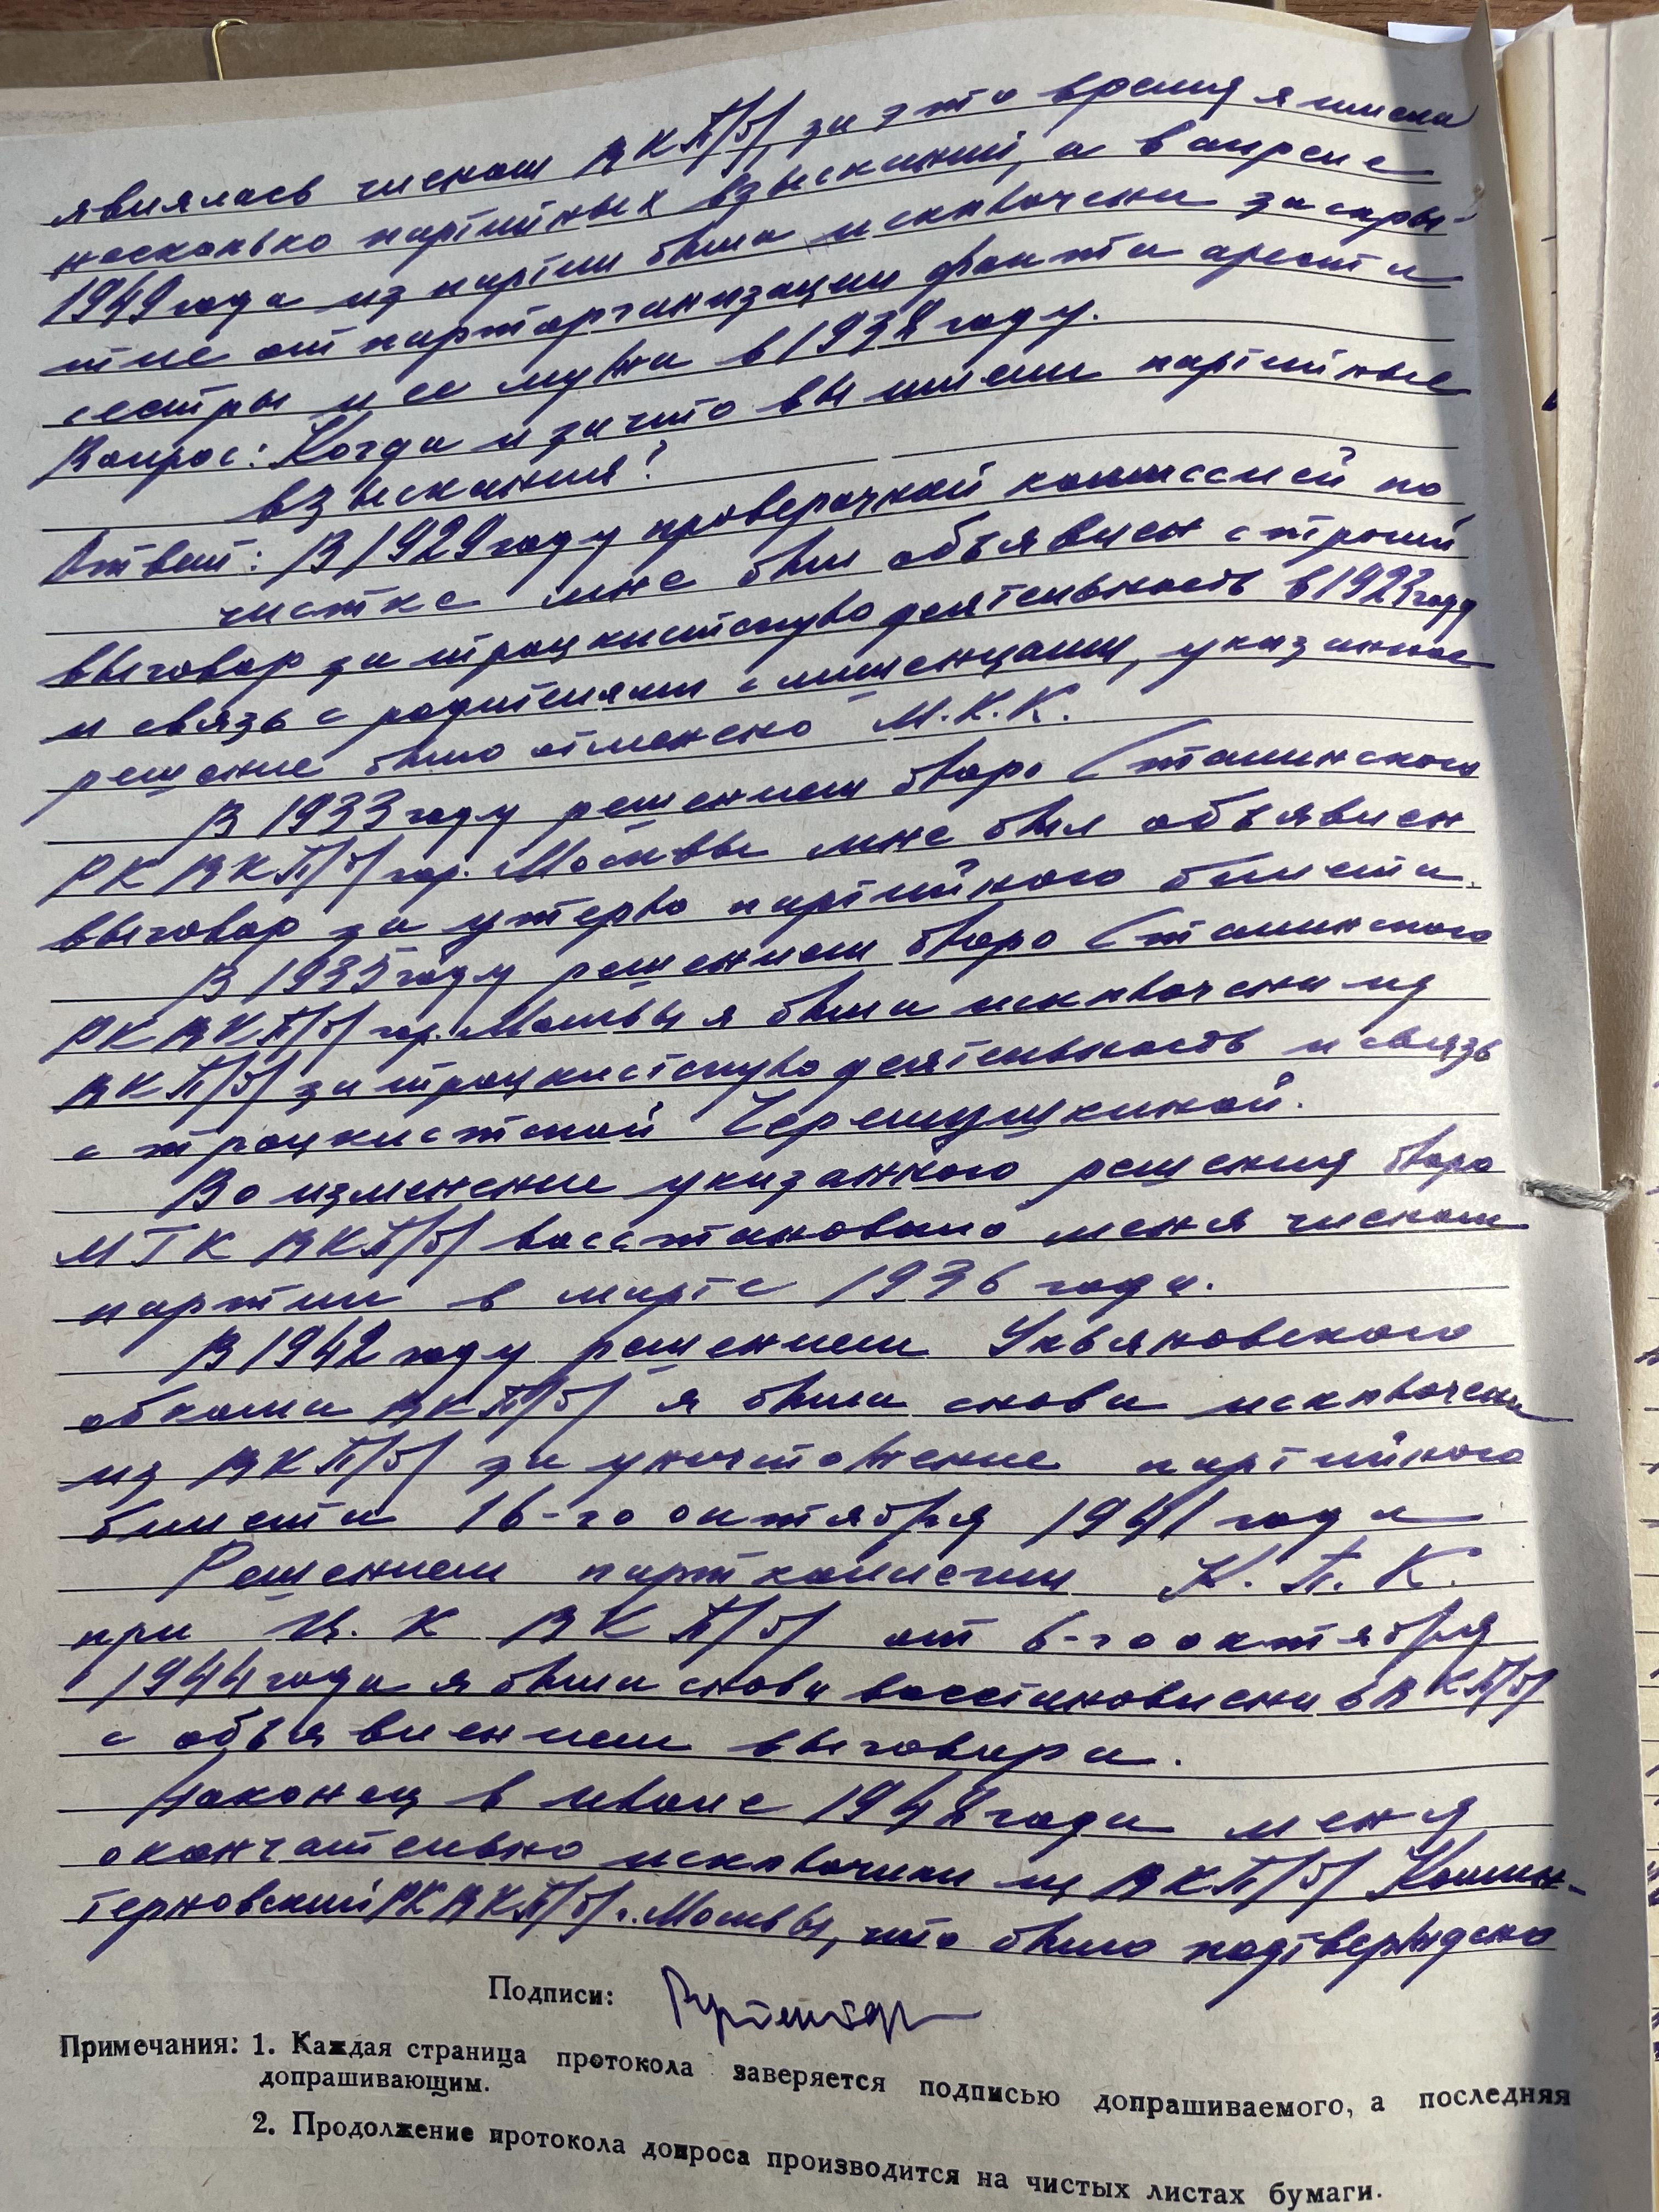 являлась членом ВКП/б/, за это время я имела
несколько партийных взысканий, а в апреле
1949 года из партии была исключена за скры-
тие от парторганизации факта ареста
сестры и ее мужа в 1938 году.
Вопрос: Когда и за что вы имели партийные
взыскания?
Ответ: В 1929 году проверочной комиссией по
чистке мне был объявлен строгий
выговор за троцкистскую деятельность в 1923 году
и связь с родителями лишенцами, указанное
решение было отменено М.К.К.
В 1933 году решением бюро Сталинского
РК ВКП/б/ гор. Москвы мне был объявлен
выговор за утерю партийного билета.
В 1935 году решением бюро Сталинского
РК ВКП/б/ гор. Москвы я была исключена из
ВКП/б/ за троцкистскую деятельность и связь
с троцкисткой Черемушкиной.
Во изменение указанного решения бюро
МГК ВКП/б/ восстановило меня членом
партии в марте 1936 года.
В 1942 году решением Ульяновского
обкома ВКП/б/ я была снова исключена
из ВКП/б/ за уничтожение партийного
билета 16-го октября 1941 года
Решением партколлегии К.П.К.
при Ц.К ВКП/б/ от 6-го октября
1944 года я была снова восстановлена в ВКП/б/
с объявлением выговора.
Наконец в июле 1948 года меня
окончательно исключили из ВКП/б/ Комин-
терновский РК ВКП/б/ г. Москвы, что было подтверждено
Подписи:
Примечания: 1. Каждая страница протокола заверяется подписью допрашиваемого, а последняя
допрашивающим.
2. Продолжение протокола допроса производится на чистых листах бумаги.